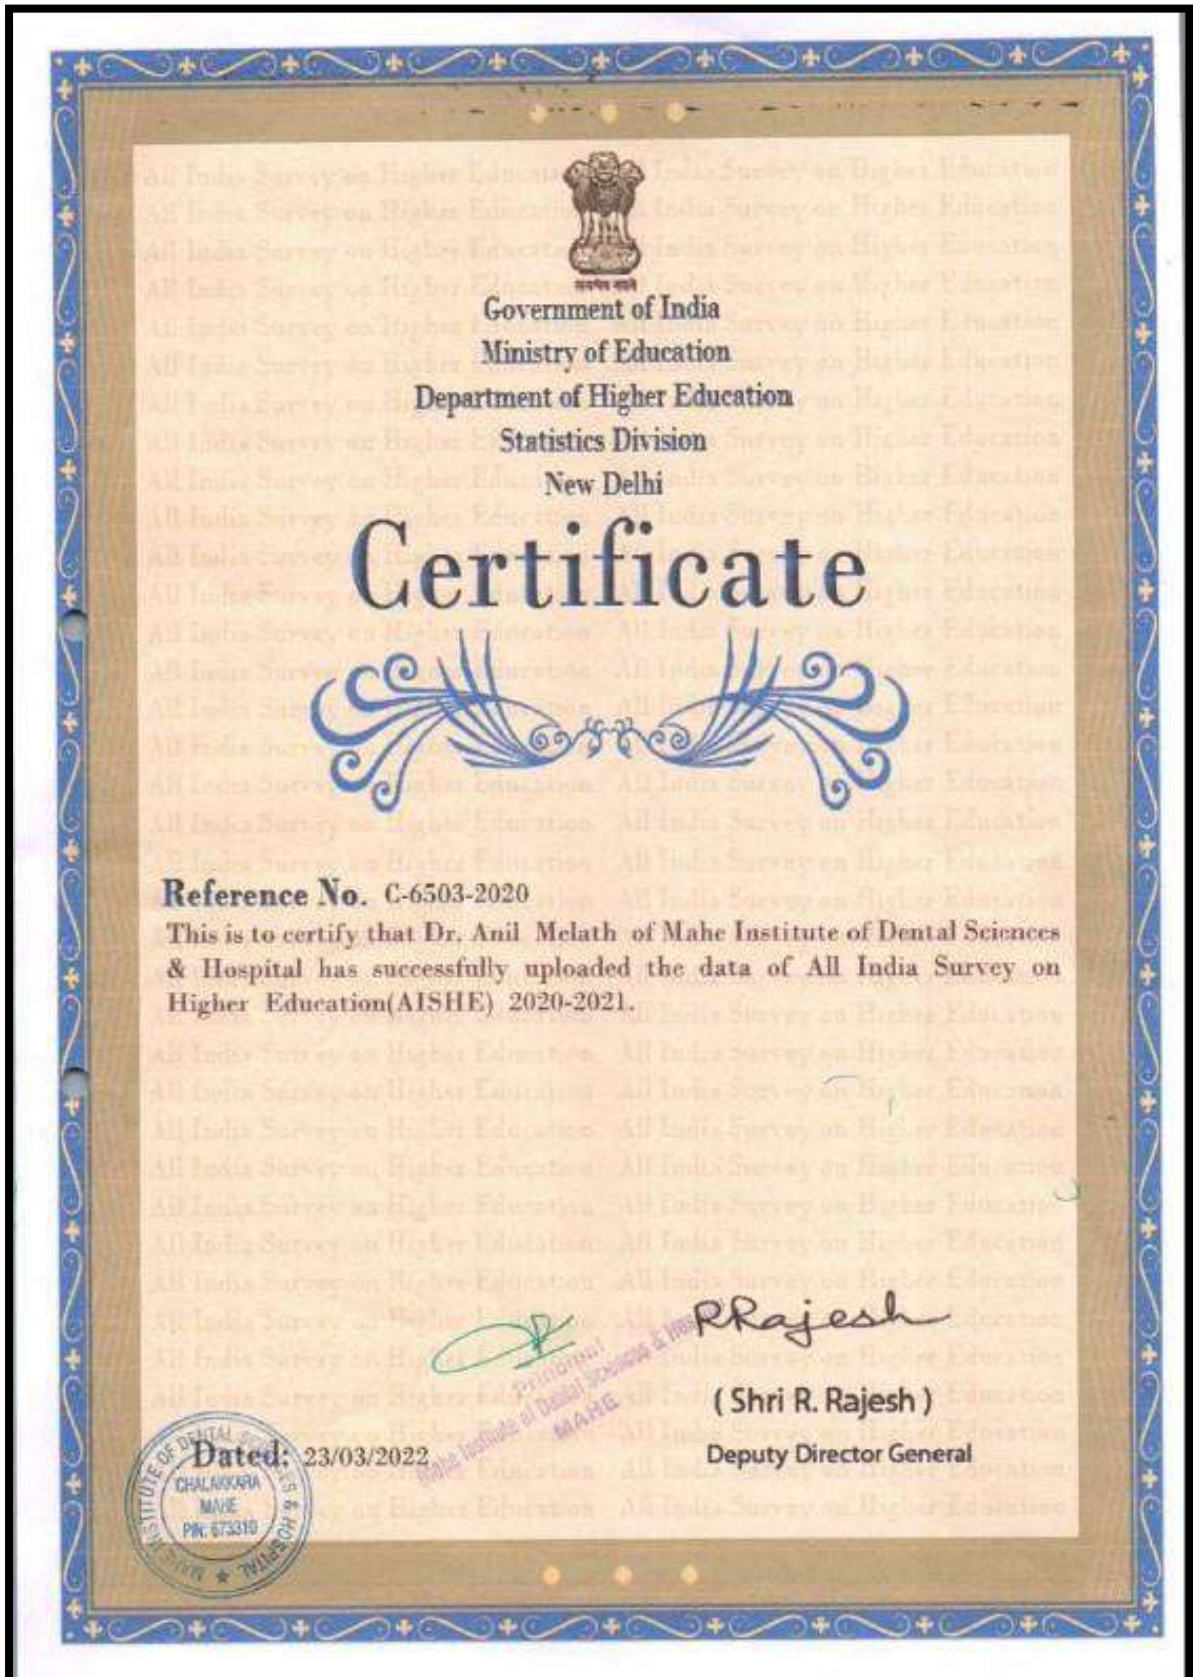 सत्यमेव जयते
Government of India
Ministry of Education
Department of Higher Education
Statistics Division
New Delhi
Certificate
Reference No. C-6503-2020
This is to certify that Dr. Anil Melath of Mahe Institute of Dental Sciences
& Hospital has successfully uploaded the data of All India Survey on
Higher Education(AISHE) 2020-2021.
RRajesh
Principal
Mahe Institute of Dental Sciences & Hospital
MAHE
( Shri R. Rajesh )
Deputy Director General
Dated: 23/03/2022
MAHE INSTITUTE OF DENTAL SCIENCES & HOSPITAL
CHALAKKARA
MAHE
PIN: 673310
All India Survey on Higher Education